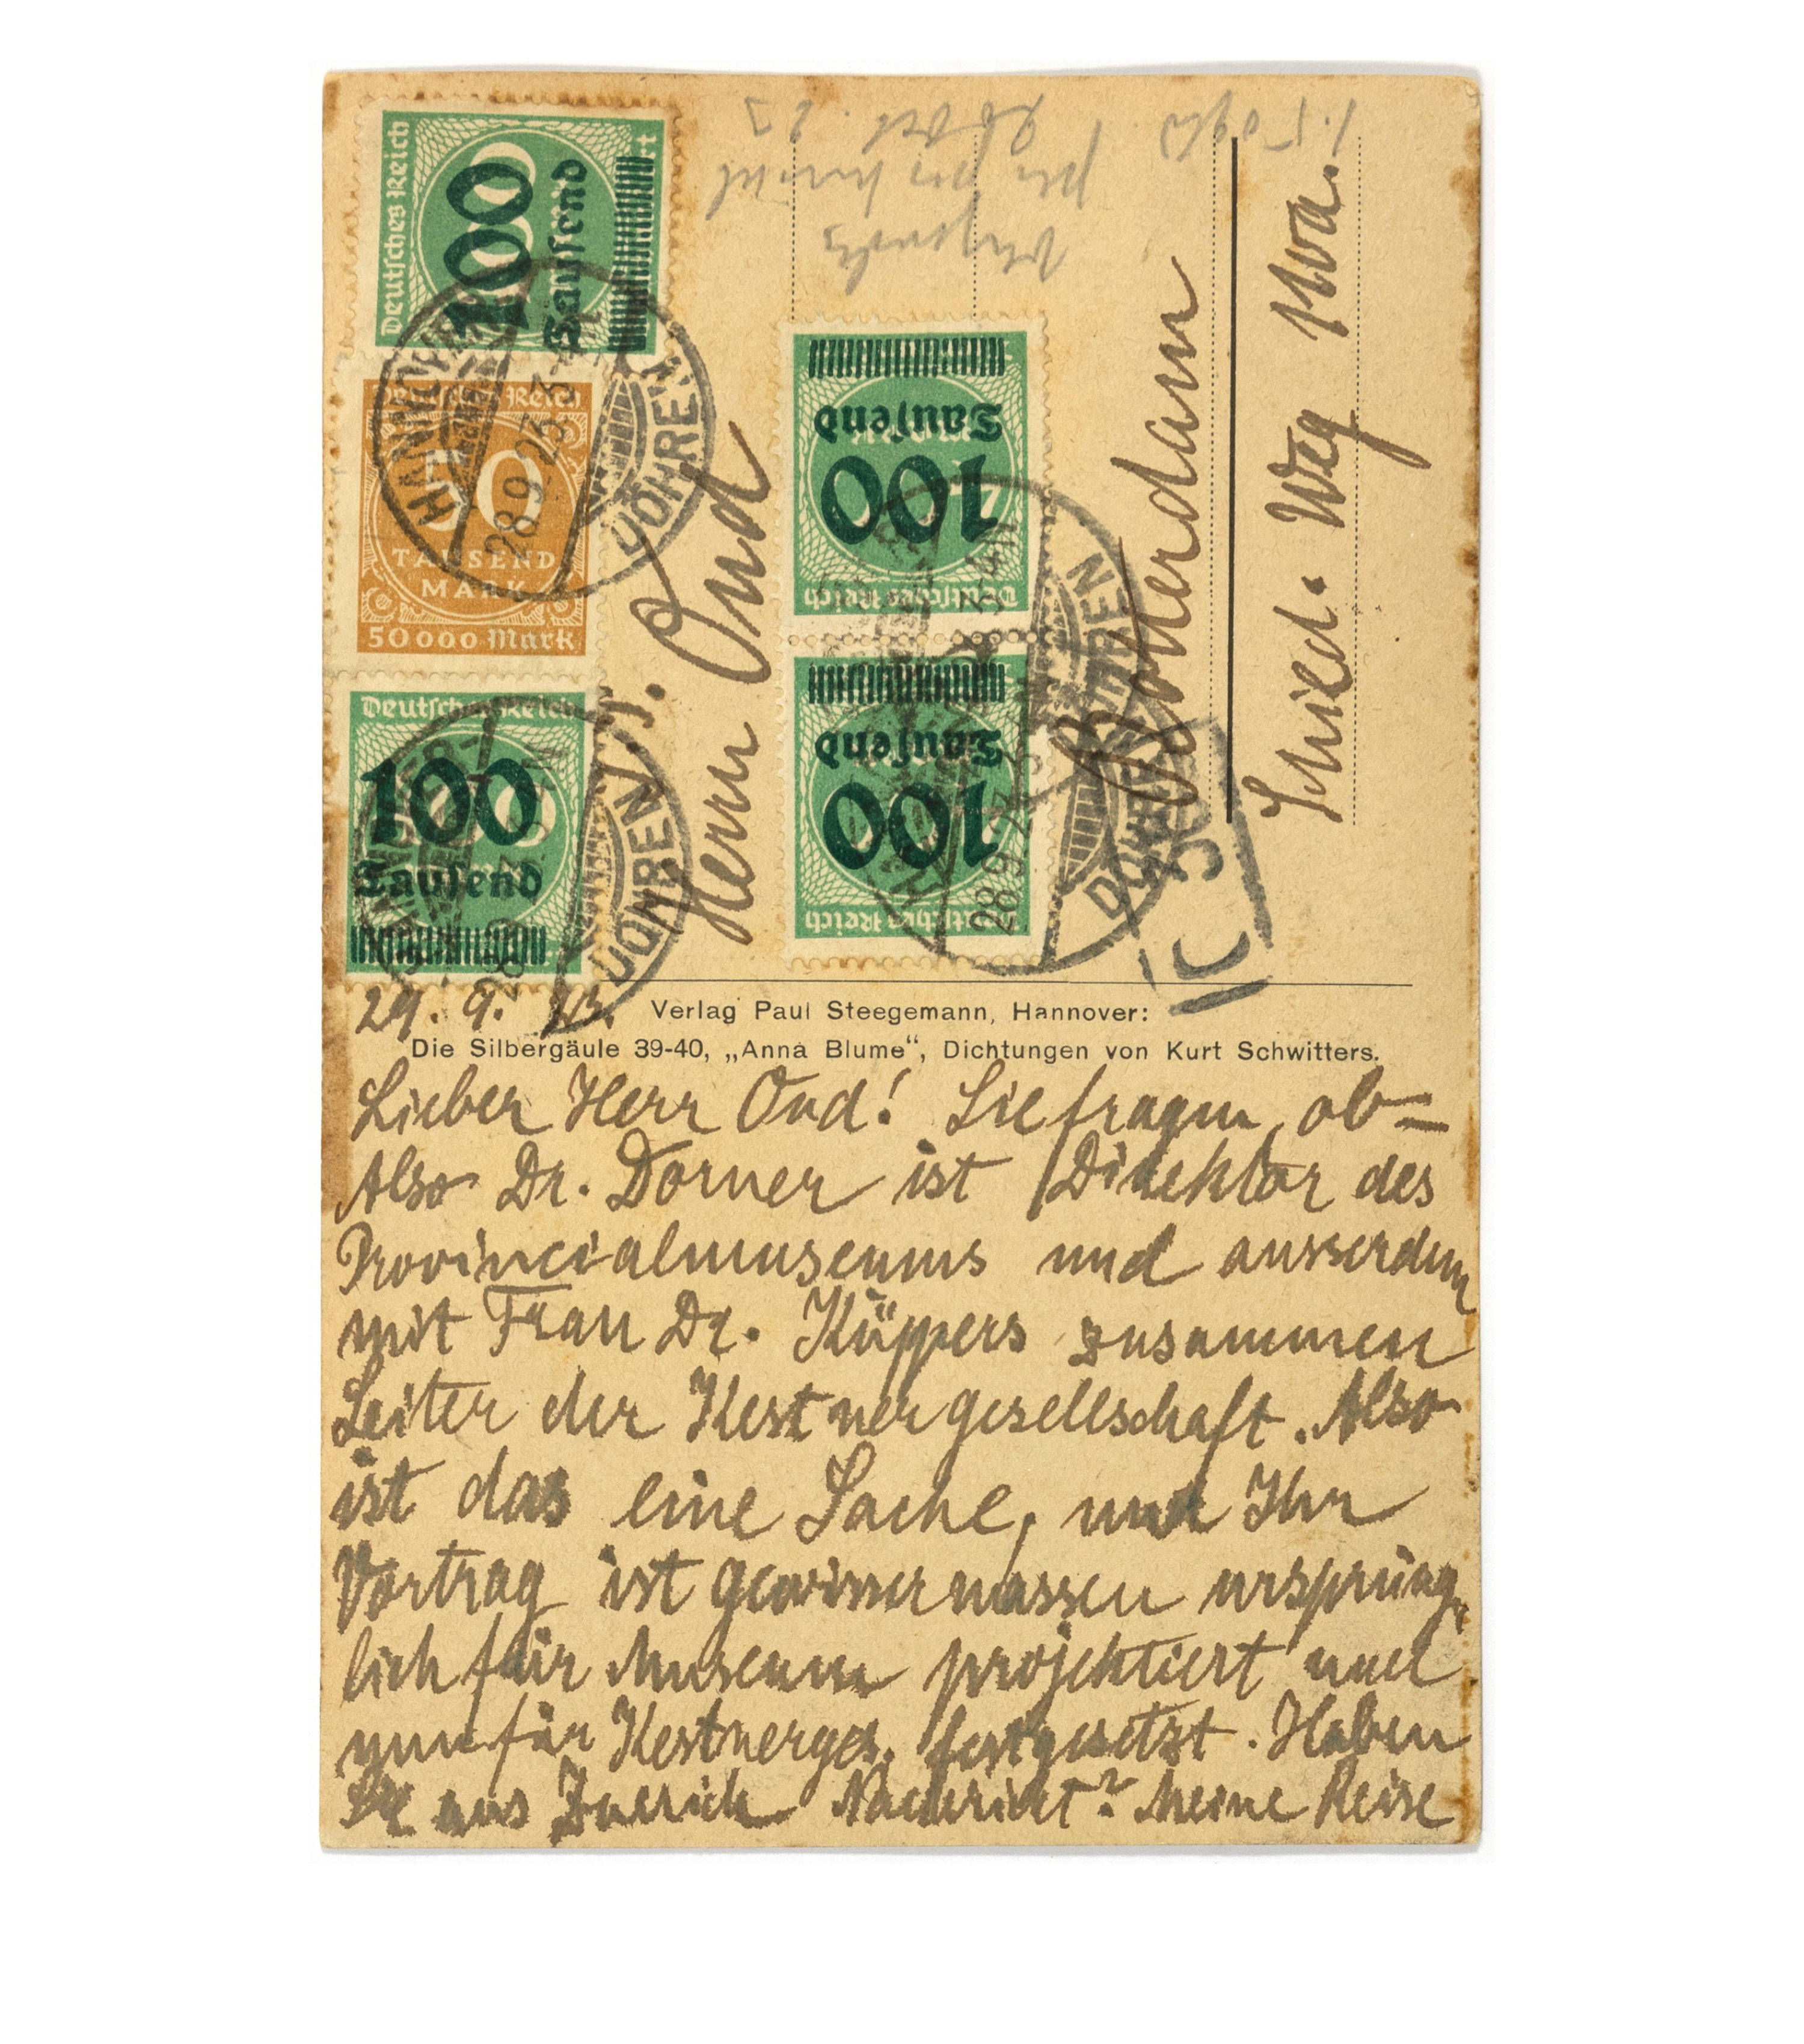 Deutsches Reich
100
Tausend
Deutsches Reich
50
TAUSEND
MARK
50000 Mark
Deutsches Reich
100
Tausend
HANNOVER
28.9.23.3-4N
DÖHREN
HANNOVER
28.9.23
DÖHREN
Deutsches Reich
100
Tausend
Deutsches Reich
100
Tausend
3-4N
DÖHREN
28.9.23
DÖHREN
Herrn Oud
Rotterdam
Schied. Weg
29. 9. 23. Verlag Paul Steegemann, Hannover:
Die Silbergäule 39-40, „Anna Blume“, Dichtungen von Kurt Schwitters.
Lieber Herr Oud! Sie fragen, ob=
Also Dr. Dorner ist Direktor des
Provincialmuseums und ausserdem
mit Frau Dr. Küppers zusammen
Leiter der Kestnergesellschaft. Also
ist das eine Sache, und Ihr
Vortrag ist gewissermassen ursprüng-
lich für Museum projektiert und
nun für Kestnerges. festgesetzt. Haben
Sie aus Zuerich Nachricht? Meine Reise